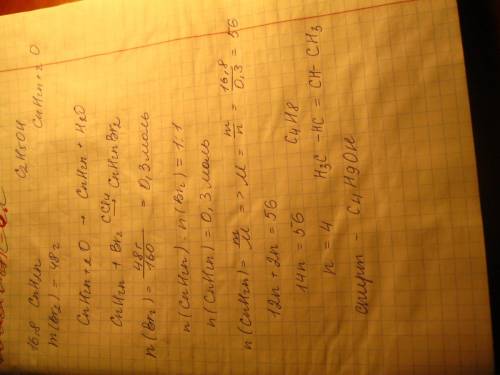 16,8 CnH2n C2H5OH
m(Br2) = 48г CnH2n+2O
CnH2n+2O → CnH2n + H2O
CnH2n + Br2 CCl4→ CnH2nBr2
n(Br2) = 48г/160 = 0,3 моль
n(CnH2n) : n(Br2) = 1:1
n(CnH2n) = 0,3 моль
n(CnH2n) = m/M => M = m/n = 16,8/0,3 = 56
12n + 2n = 56
14n = 56 C4H8
n = 4 H3C - HC = CH - CH3
спирт - C4H9OH